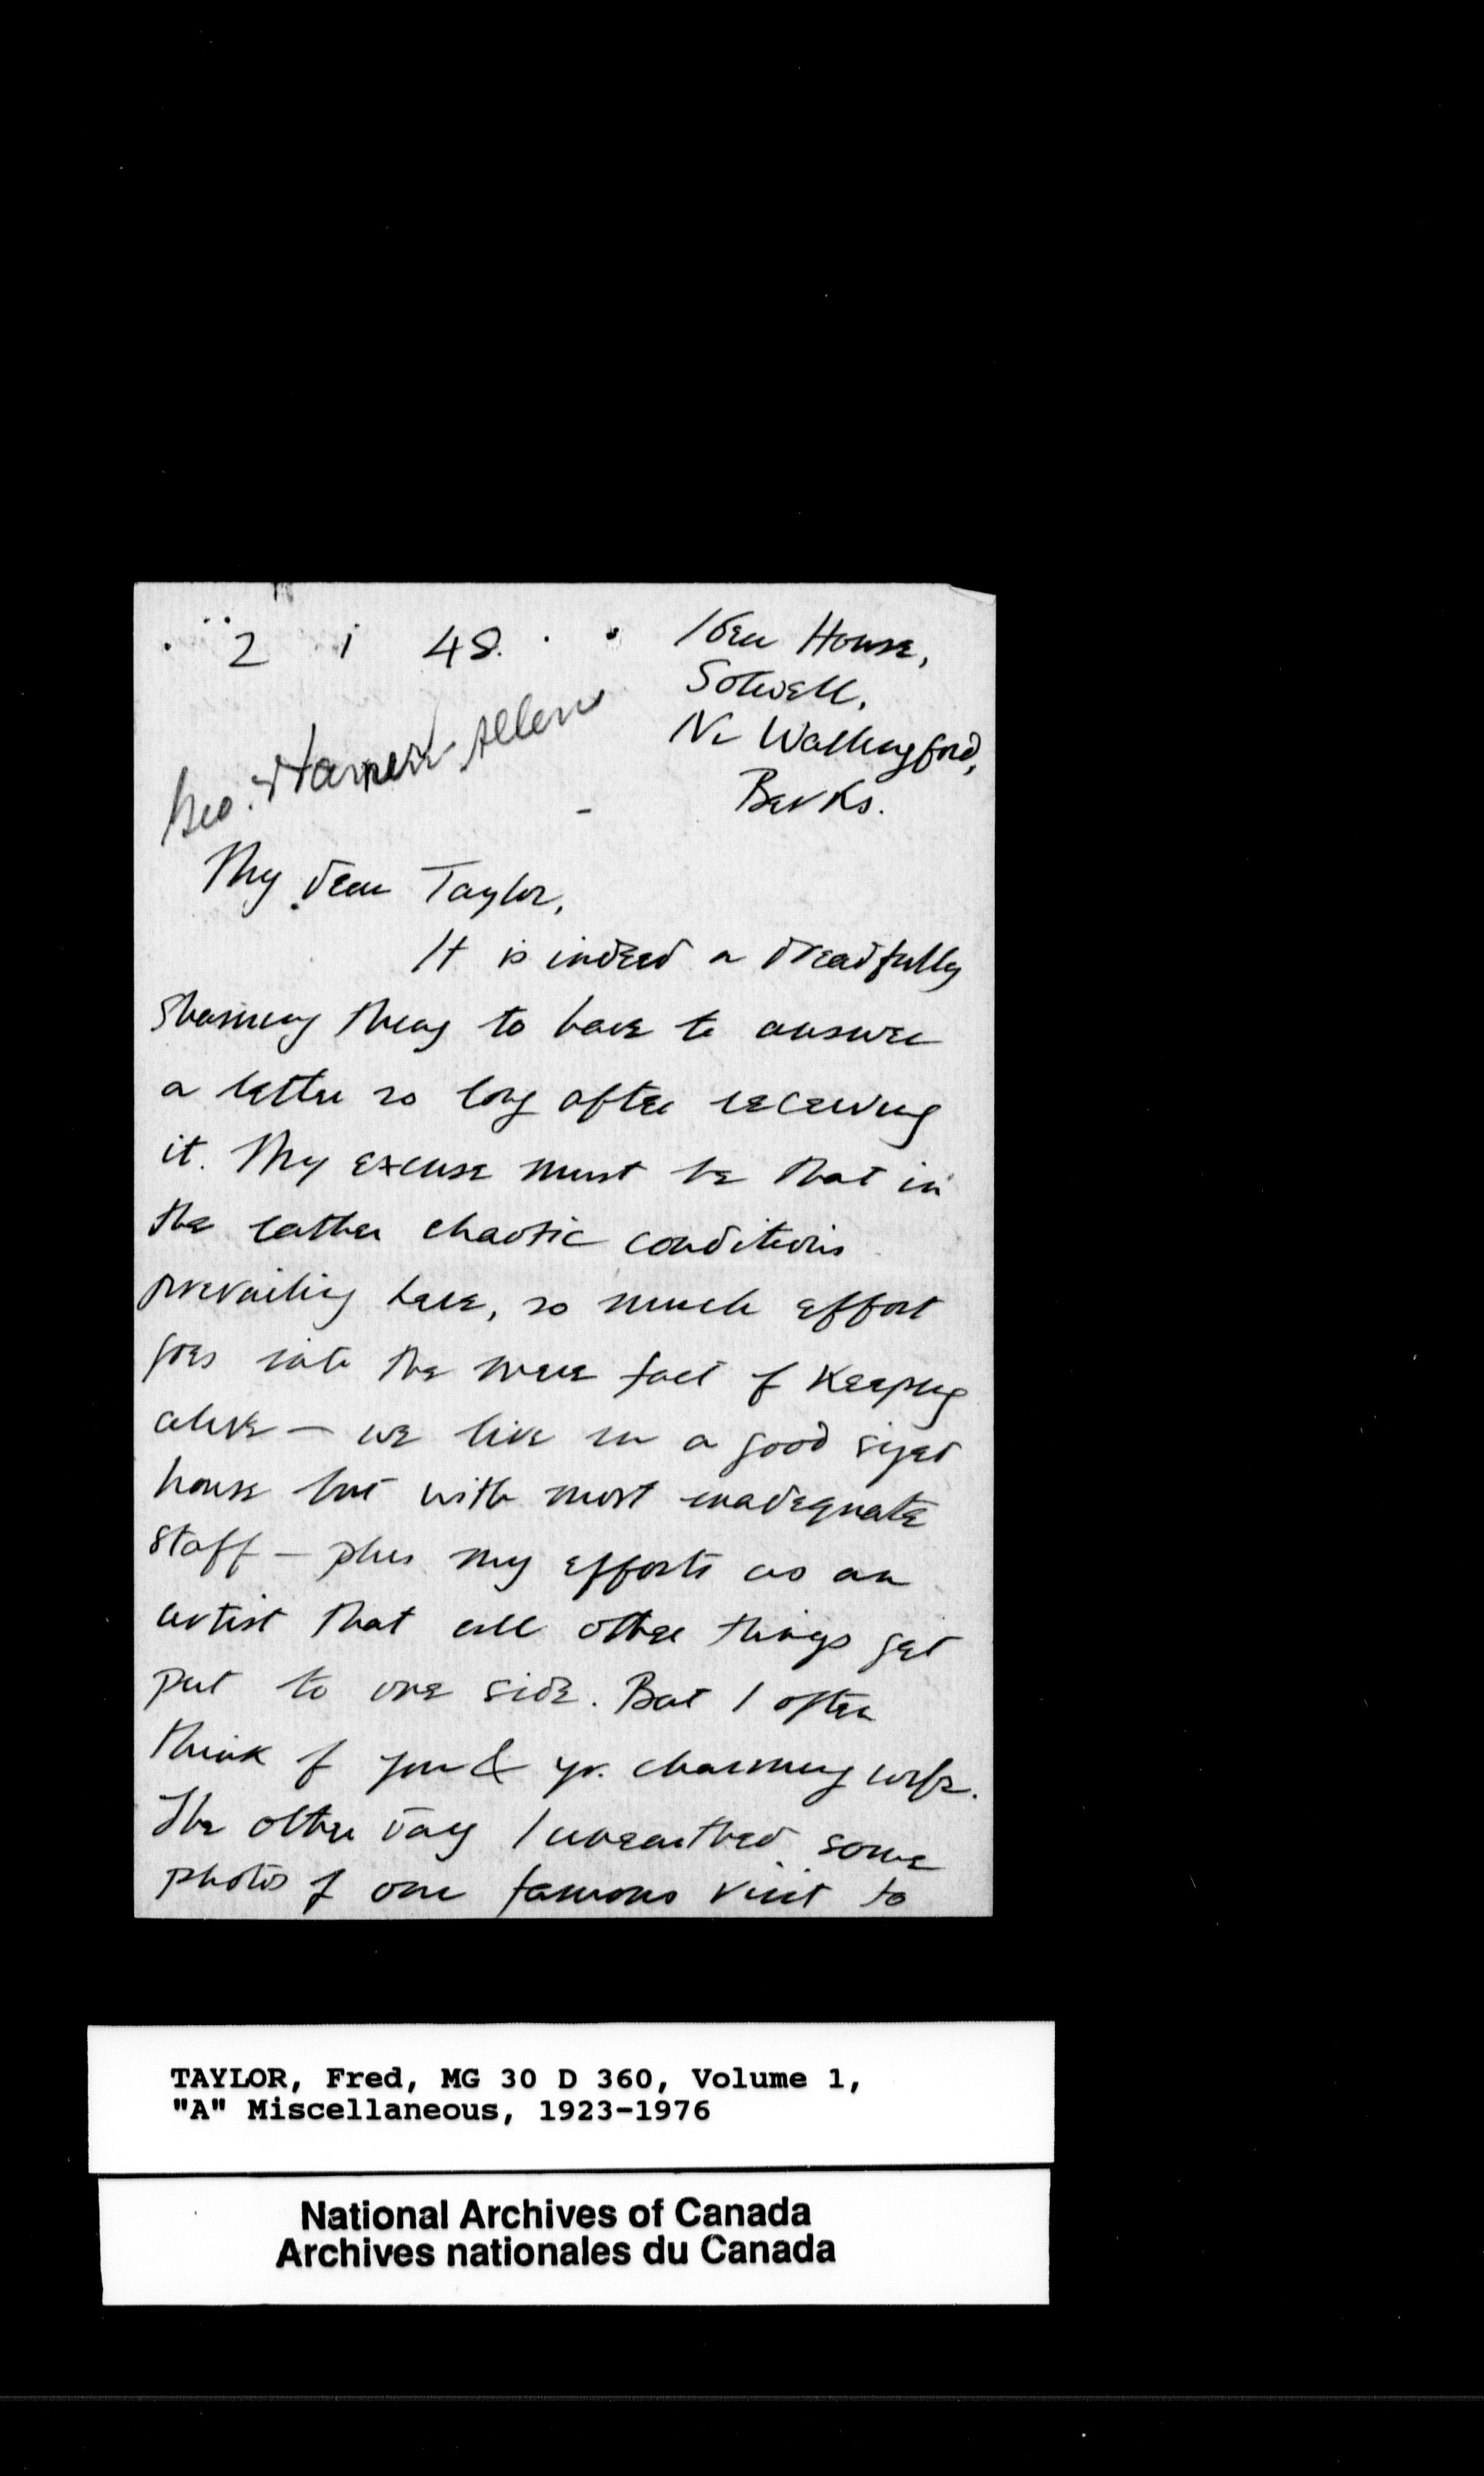 2 i 48.
House,
Sotwell,
Nr Wallingford,
Berks.
Geo. Allen
My dear Taylor,
It is indeed a dreadfully
shaming thing to have to answer
a letter so long after receiving
it. My excuse must be that in
the rather chaotic conditions
prevailing here, so much effort
goes into the mere fact of keeping
alive – we live in a good sized
house but with most inadequate
staff – plus my efforts as an
artist that all other things get
put to one side. But I often
think of you & yr. charming wife.
The other day I unearthed some
photos of our famous visit to
TAYLOR, Fred, MG 30 D 360, Volume 1,
"A" Miscellaneous, 1923-1976
National Archives of Canada
Archives nationales du Canada